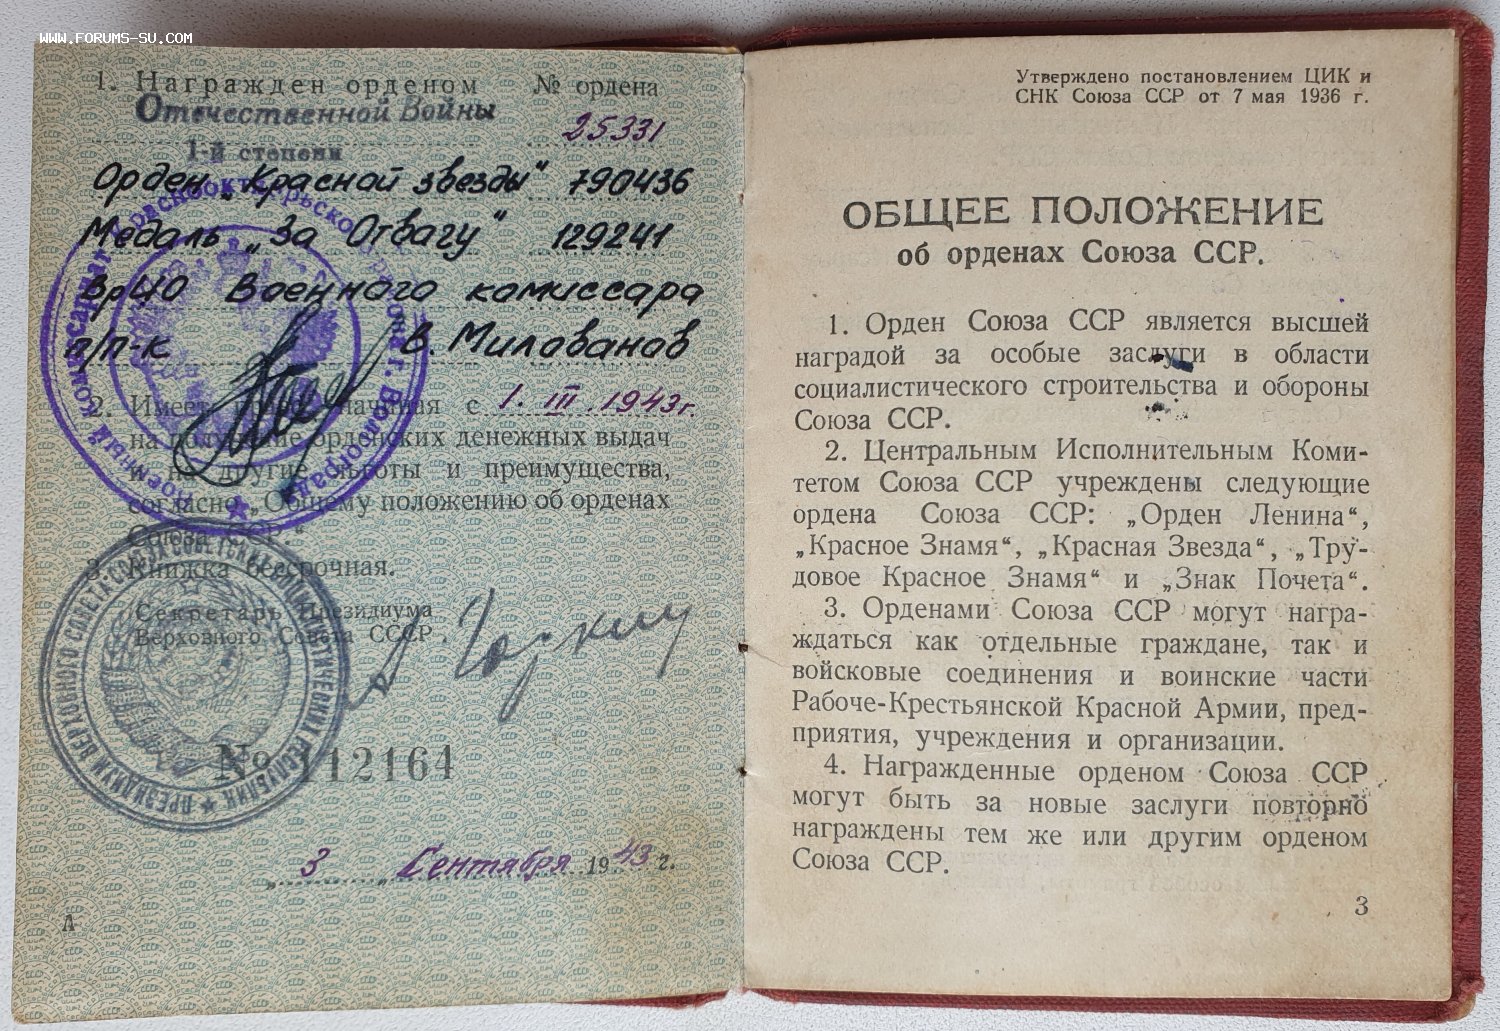 WWW.FORUMS-SU.COM
1. Награжден орденом № ордена
Отечественной Войны
25331
1-й степени
Орден „Красной звезды" 790436
Медаль „За Отвагу" 129241
ВрИО Военного комиссара
п/п-к В. Милованов
2. Имеет начиная с 1. III. 1943 г.
на получение орденских денежных выдач
и на другие льготы и преимущества,
согласно „Общему положению об орденах
Союза ССР."
3. Книжка бессрочная.
Секретарь Президиума
Верховного Совета СССР.
А Горкин
№ 112164
„ 3 „ Сентября 1943 г.
А
Военный комиссариат Краснооктябрьского района г. Волгограда
ПРЕЗИДИУМ ВЕРХОВНОГО СОВЕТА СОЮЗА СОВЕТСКИХ СОЦИАЛИСТИЧЕСКИХ РЕСПУБЛИК
Утверждено постановлением ЦИК и
СНК Союза ССР от 7 мая 1936 г.
ОБЩЕЕ ПОЛОЖЕНИЕ
об орденах Союза ССР.
1. Орден Союза ССР является высшей
наградой за особые заслуги в области
социалистического строительства и обороны
Союза ССР.
2. Центральным Исполнительным Коми-
тетом Союза ССР учреждены следующие
ордена Союза ССР: „Орден Ленина“,
„Красное Знамя“, „Красная Звезда“, „Тру-
довое Красное Знамя“ и „Знак Почета“.
3. Орденами Союза ССР могут награ-
ждаться как отдельные граждане, так и
войсковые соединения и воинские части
Рабоче-Крестьянской Красной Армии, пред-
приятия, учреждения и организации.
4. Награжденные орденом Союза ССР
могут быть за новые заслуги повторно
награждены тем же или другим орденом
Союза ССР.
3